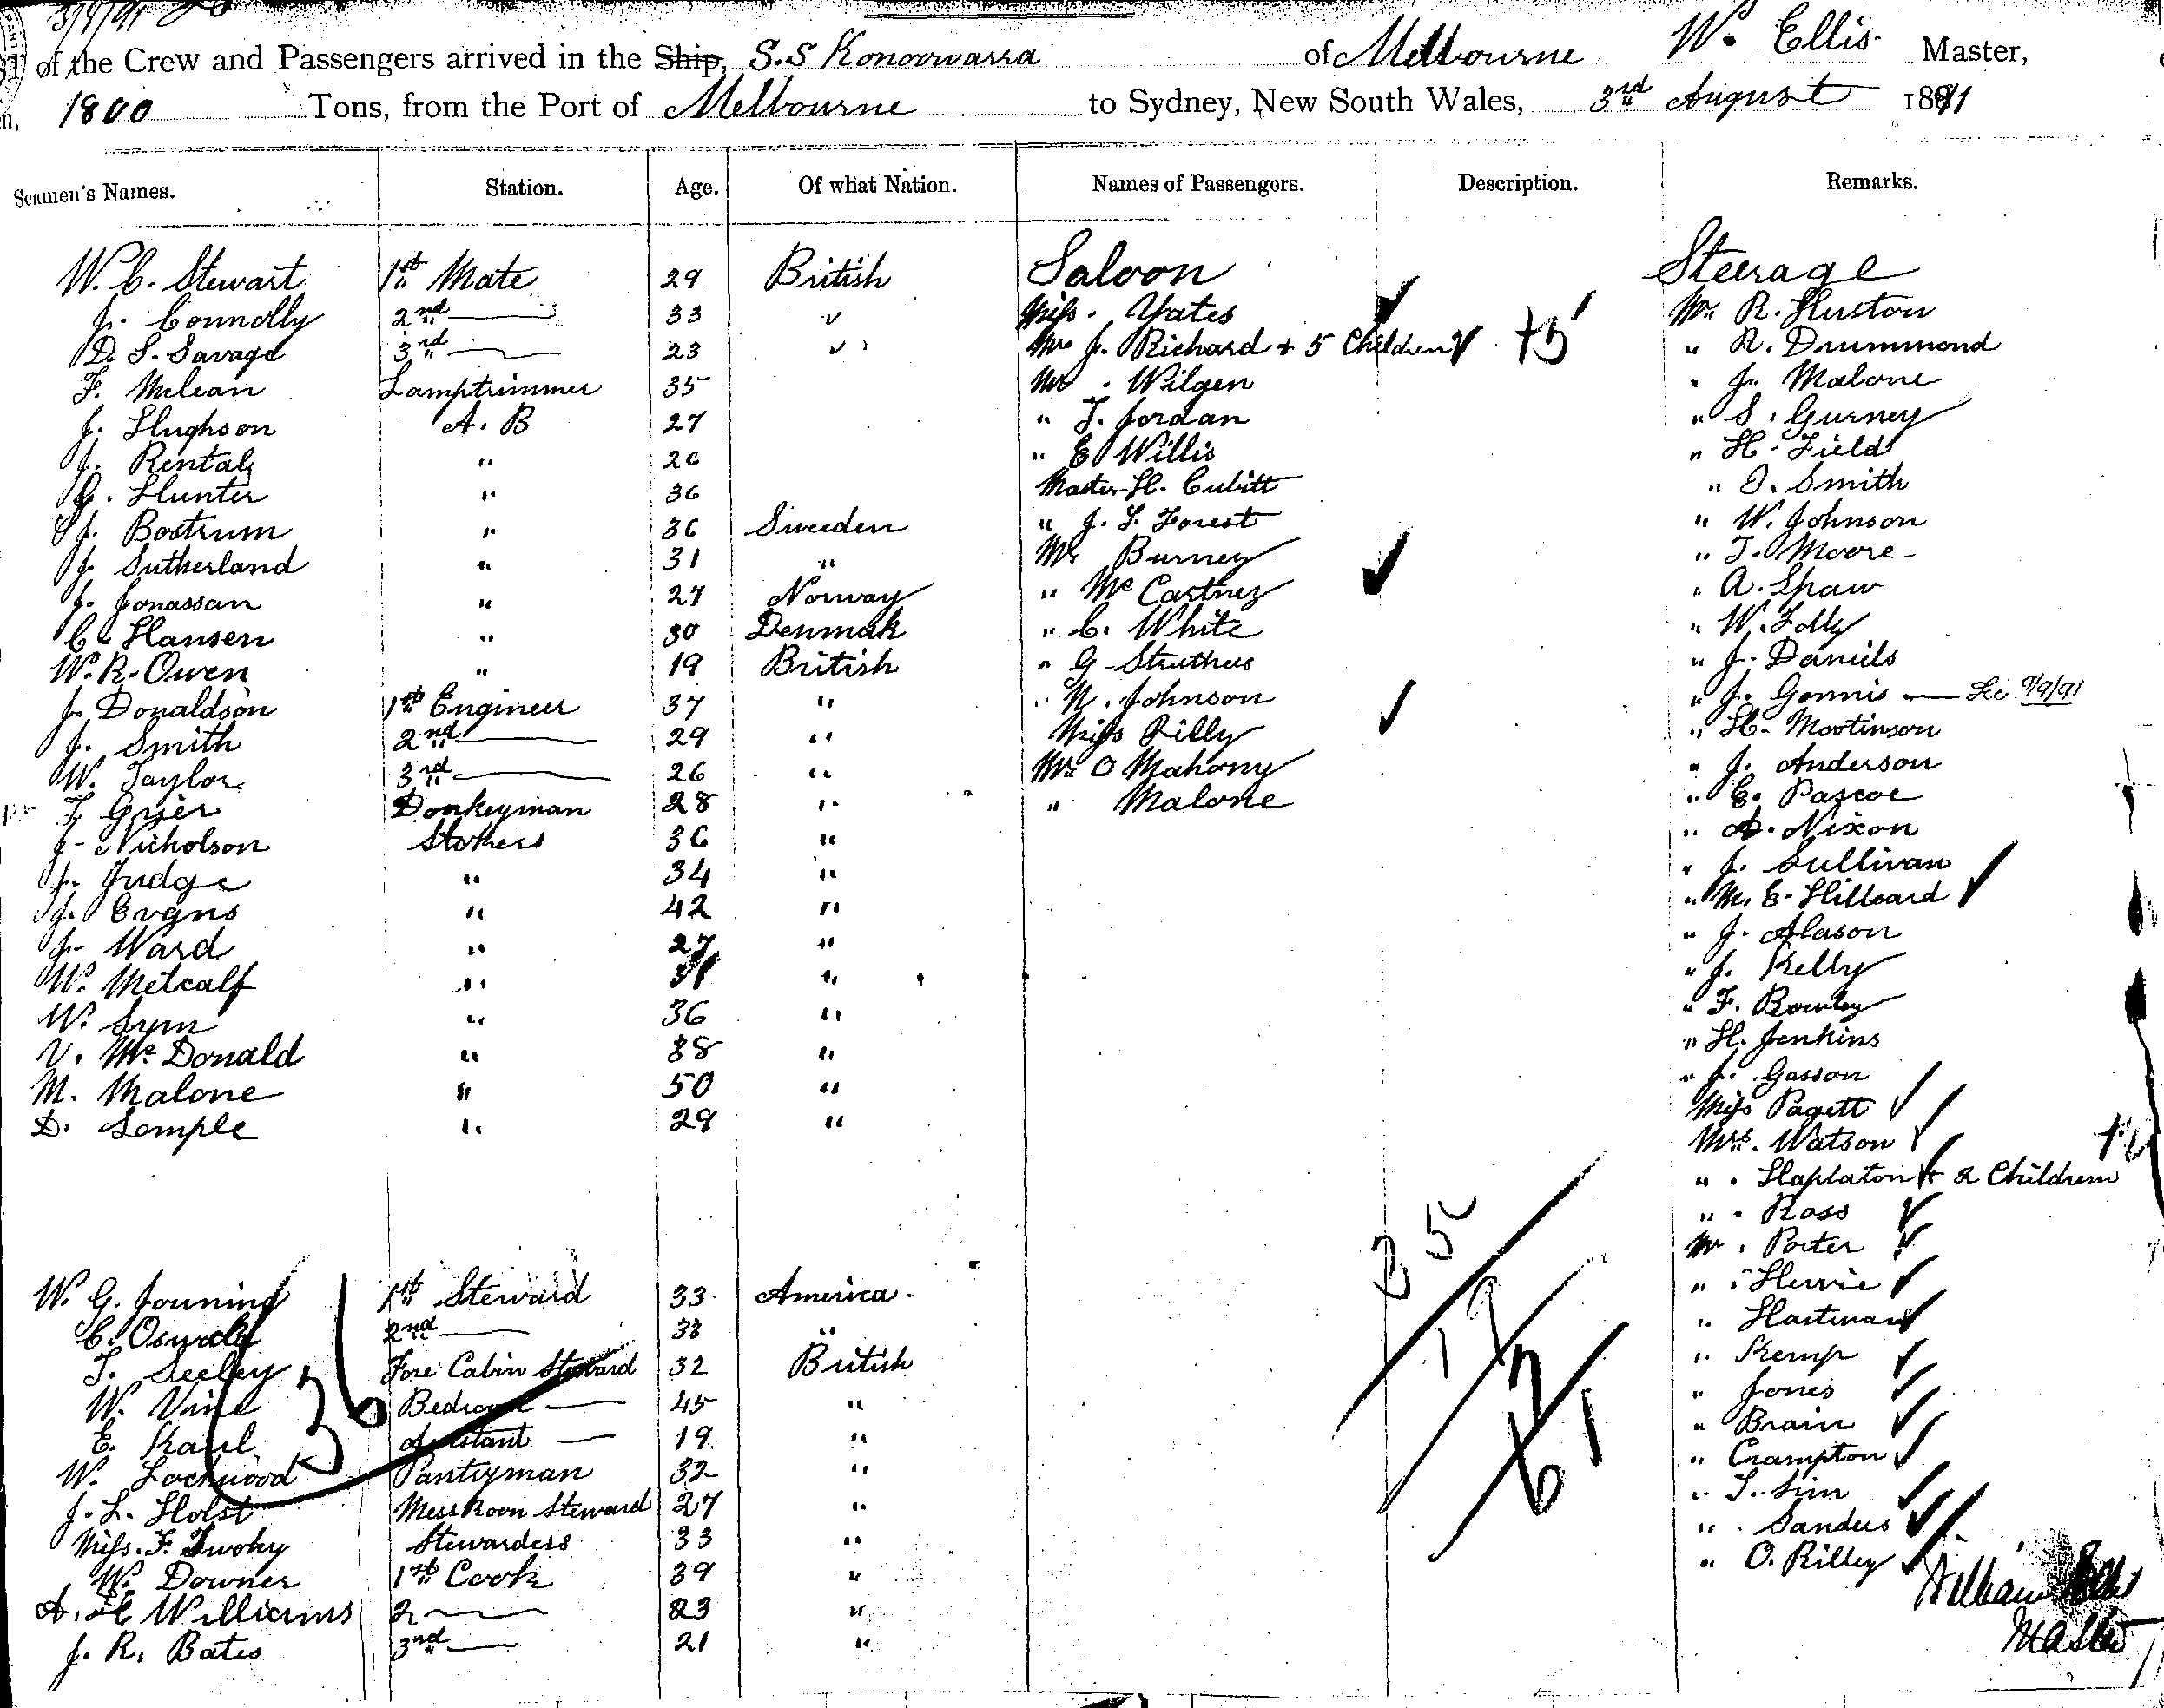 3/8/91
of the Crew and Passengers arrived in the Ship, S.S Konoowarra of Melbourne W. Ellis Master,
1800 Tons, from the Port of Melbourne to Sydney, New South Wales, 3rd August 1891
Seamen's Names. Station. Age. Of what Nation. Names of Passengers. Description. Remarks.
W. C. Stewart 1st Mate 29 British Saloon Steerage
J. Connolly 2nd 33 " Miss. Yates Mr. R. Huston
D. S. Savage 3rd 23 " Mrs J. Richard + 5 Children +5 " R. Drummond
F. Mclean Lamptrimmer 35 Mr. Wilgen " J. Malone
J. Hughson A. B 27 " T. Jordan " S. Gurney
J. Rental 26 " E Willis " H. Field
G. Hunter " 36 Master H. Cubitt " J. Smith
J. Bostrum " 36 Sweden " J. S. Forest " W. Johnson
J. Sutherland " 31 " Mr Burney " T. Moore
J. Jonassan " 27 Norway " Mc Cartney " A. Shaw
C. Hansen " 30 Denmak " C. White " W. Folly
W. R. Owen " 19 British " G Struthers " J. Daniels
J. Donaldson 1st Engineer 37 " " N. Johnson " J. Gennis
J. Smith 2nd 29 " Miss Rilly " H. Mortinson
W. Taylor 3rd 26 " Mr. O Mahony " J. Anderson
T Grier Donkeyman 28 " " Malone " C. Pascoe
J. Nicholson Stokers 36 " " A. Nixon
J. Judge " 34 " " J. Sullivan
J. Evans " 42 " " M. E. Hilleard
J. Ward " 27 " " J. Alason
W. Metcalf " "  " J. Kelly
W. Sym " 36 " " F. Bowley
V. Mc Donald " 38 " " H. Jenkins
M. Malone " 50 " " J. Gasson
D. Semple " 29 " Miss Pagett
Mrs. Watson
" Haplaton + 2 Children
" Ross
Mr. Porter
W. G. Jouning 1st Steward 33 America " Hervie
C. Oswald 2nd 33 " " Hartman
T. Seeley Fore Cabin Steward 32 British " Kemp
W. Vine Bedroom 45 " " Jones
E. Kaul Assistant 19 " " Brain
W. Lockwood Pantryman 32 " " Crampton
J. L. Holst Mess Room Steward 27 " " T. Sim
Miss. F. Twohy Stewardess 33 " " Sanders
W. Downer 1st Cook 39 " " O. Rilley
A. E Williams 2 23 " William Ellis
J. R. Bates 3rd 21 " Master
36
61